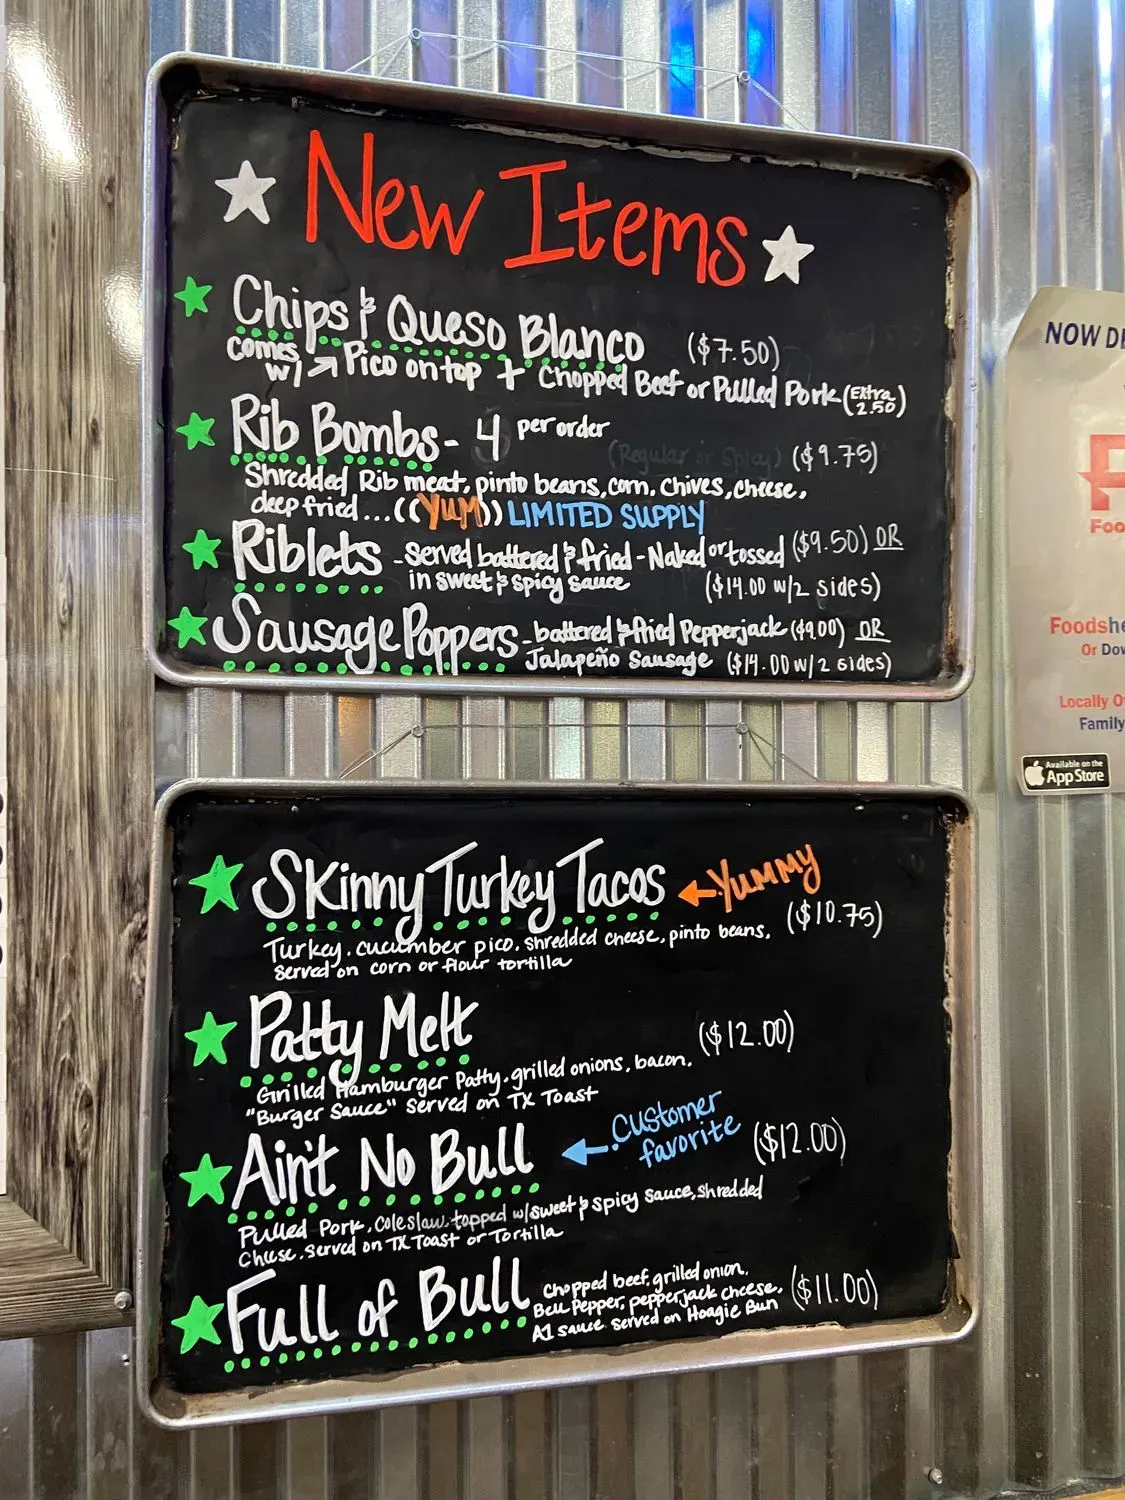 New Items
Chips & Queso Blanco ($7.50)
comes w/ → Pico on top + Chopped Beef or Pulled Pork (Extra 2.50)
Rib Bombs - 4 per order
(Regular or Spicy) ($9.75)
Shredded Rib meat, pinto beans, corn, chives, cheese,
deep fried...((YUM)) LIMITED SUPPLY
Riblets - served battered & fried - Naked or tossed ($9.50) OR
in sweet & spicy sauce ($14.00 w/2 sides)
Sausage Poppers - battered & fried Pepperjack ($9.00) OR
Jalapeño Sausage ($14.00 w/2 sides)
Skinny Turkey Tacos ← Yummy
($10.75)
Turkey, cucumber pico, shredded cheese, pinto beans,
served on corn or flour tortilla
Patty Melt ($12.00)
Grilled Hamburger Patty, grilled onions, bacon,
"Burger Sauce" served on TX Toast
Ain't No Bull ← Customer favorite ($12.00)
Pulled Pork, coleslaw, topped w/sweet & spicy sauce, shredded
Cheese. Served on TX Toast or Tortilla
Full of Bull
Chopped beef, grilled onion,
Bell Pepper, pepperjack cheese, ($11.00)
A1 sauce served on Hoagie Bun
NOW DE
Foo
Foodshe
Or Dow
Locally O
Family
Available on the
App Store